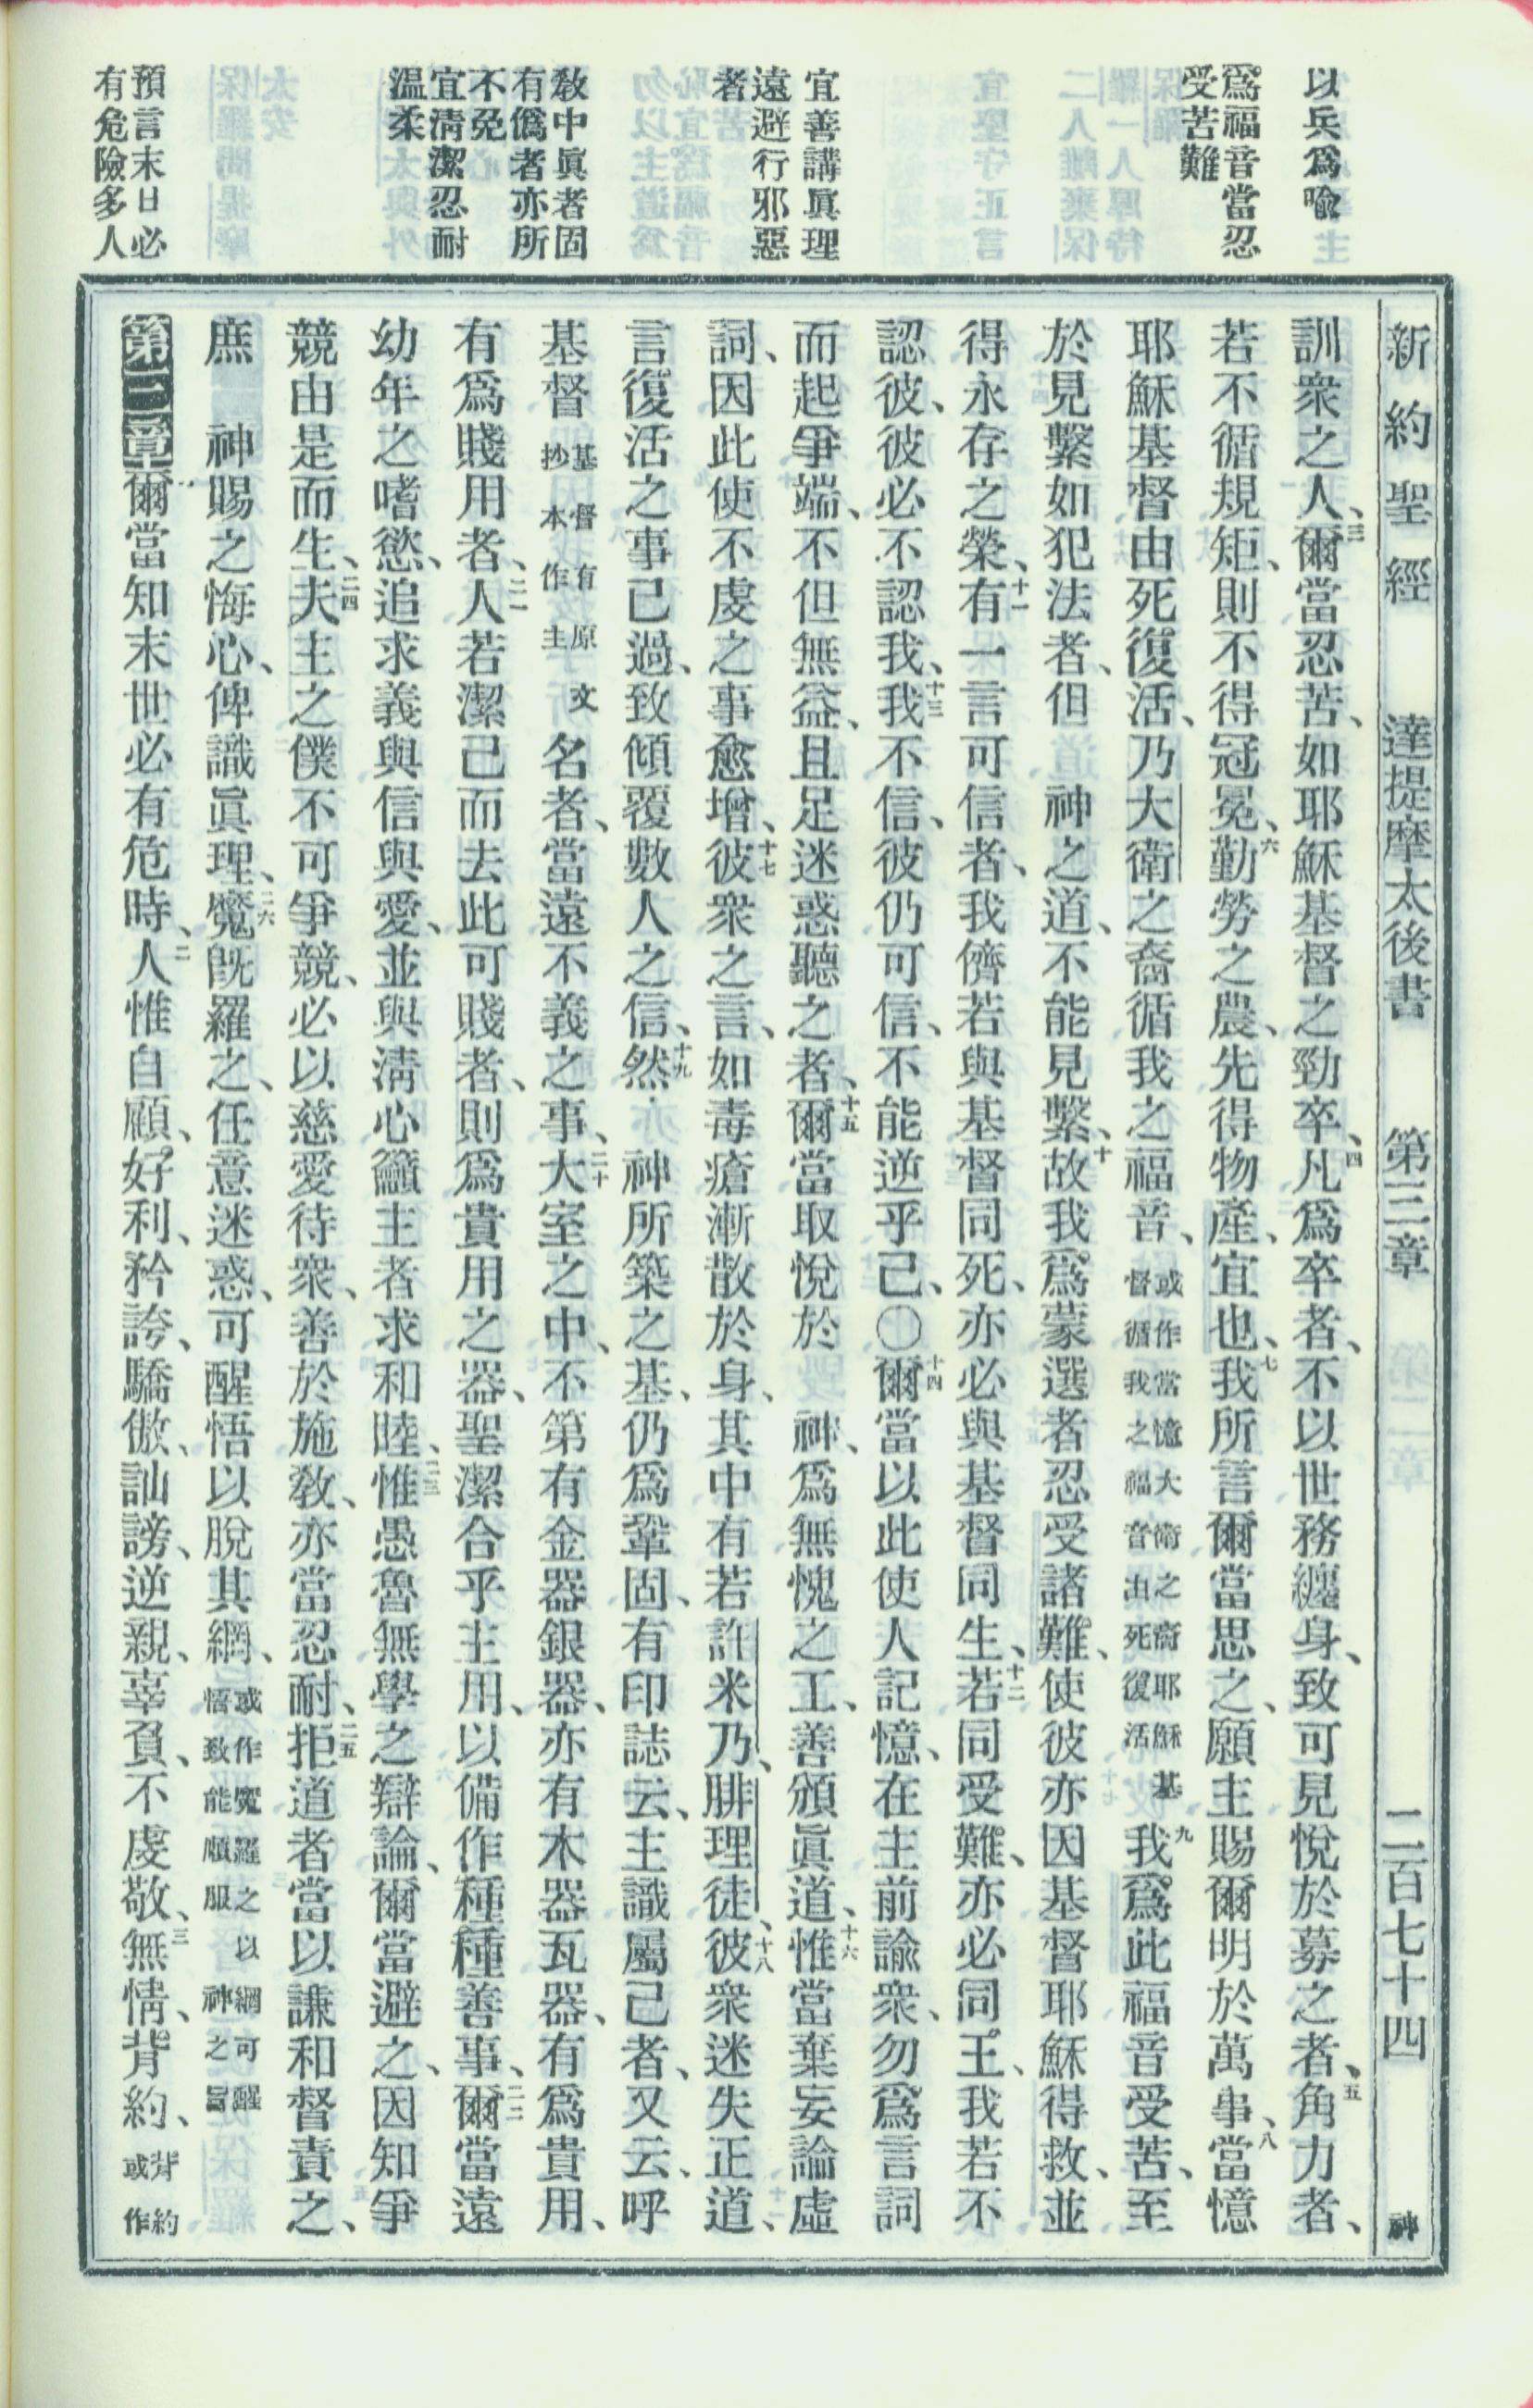 以兵爲喩
爲福音當忍
受苦難
宜善講眞理
遠避行邪惡
者
敎中眞者固
有僞者亦所
不免
宜淸潔忍耐
溫柔
預言末日必
有危險多人
新約聖經 達提摩太後書 第三章 二百七十四 神
訓衆之人、三爾當忍苦、如耶穌基督之勁卒、四凡爲卒者、不以世務纏身、致可見悅於募之者、五角力者、
若不循規矩、則不得冠冕、六勤勞之農、先得物產、宜也、七我所言爾當思之、願主賜爾明於萬事、八當憶
耶穌基督由死復活、乃大衛之裔循我之福音、或作當憶大衛之裔耶穌基督循我之福音由死復活九我爲此福音受苦、至
於見繫如犯法者、但 神之道、不能見繫、十故我爲蒙選者忍受諸難、使彼亦因基督耶穌得救、並
得永存之榮、十一有一言可信者、我儕若與基督同死、亦必與基督同生、十二若同受難、亦必同王、我若不
認彼、彼必不認我、十三我不信、彼仍可信、不能逆乎己、〇十四爾當以此使人記憶、在主前諭衆、勿爲言詞
而起爭端、不但無益、且足迷惑聽之者、十五爾當取悅於 神、爲無愧之工、善頒眞道、十六惟當棄妄論虛
詞、因此使不虔之事愈增、十七彼衆之言、如毒瘡漸散於身、其中有若許米乃、腓理徒、十八彼衆迷失正道、
言復活之事已過、致傾覆數人之信、十九然 神所築之基、仍爲鞏固、有印誌云、主識屬己者、又云、呼
基督基督有原文抄本作主名者、當遠不義之事、二十大室之中、不第有金器銀器、亦有木器瓦器、有爲貴用、
有爲賤用者、二一人若潔己而去此可賤者、則爲貴用之器、聖潔合乎主用、以備作種種善事、二二爾當遠
幼年之嗜慾、追求義與信與愛、並與淸心籲主者求和睦、二三惟愚魯無學之辯論、爾當避之、因知爭
競由是而生、二四夫主之僕不可爭競、必以慈愛待衆、善於施敎、亦當忍耐、二五拒道者當以謙和督責之、
庶 神賜之悔心、俾識眞理、二六魔旣羅之、任意迷惑、可醒悟以脫其網、或作魔羅之以網可醒悟致能順服 神之旨
第三章一爾當知末世必有危時、二人惟自顧、好利、矜誇、驕傲、訕謗、逆親、辜負、不虔敬、三無情、背約、背約或作